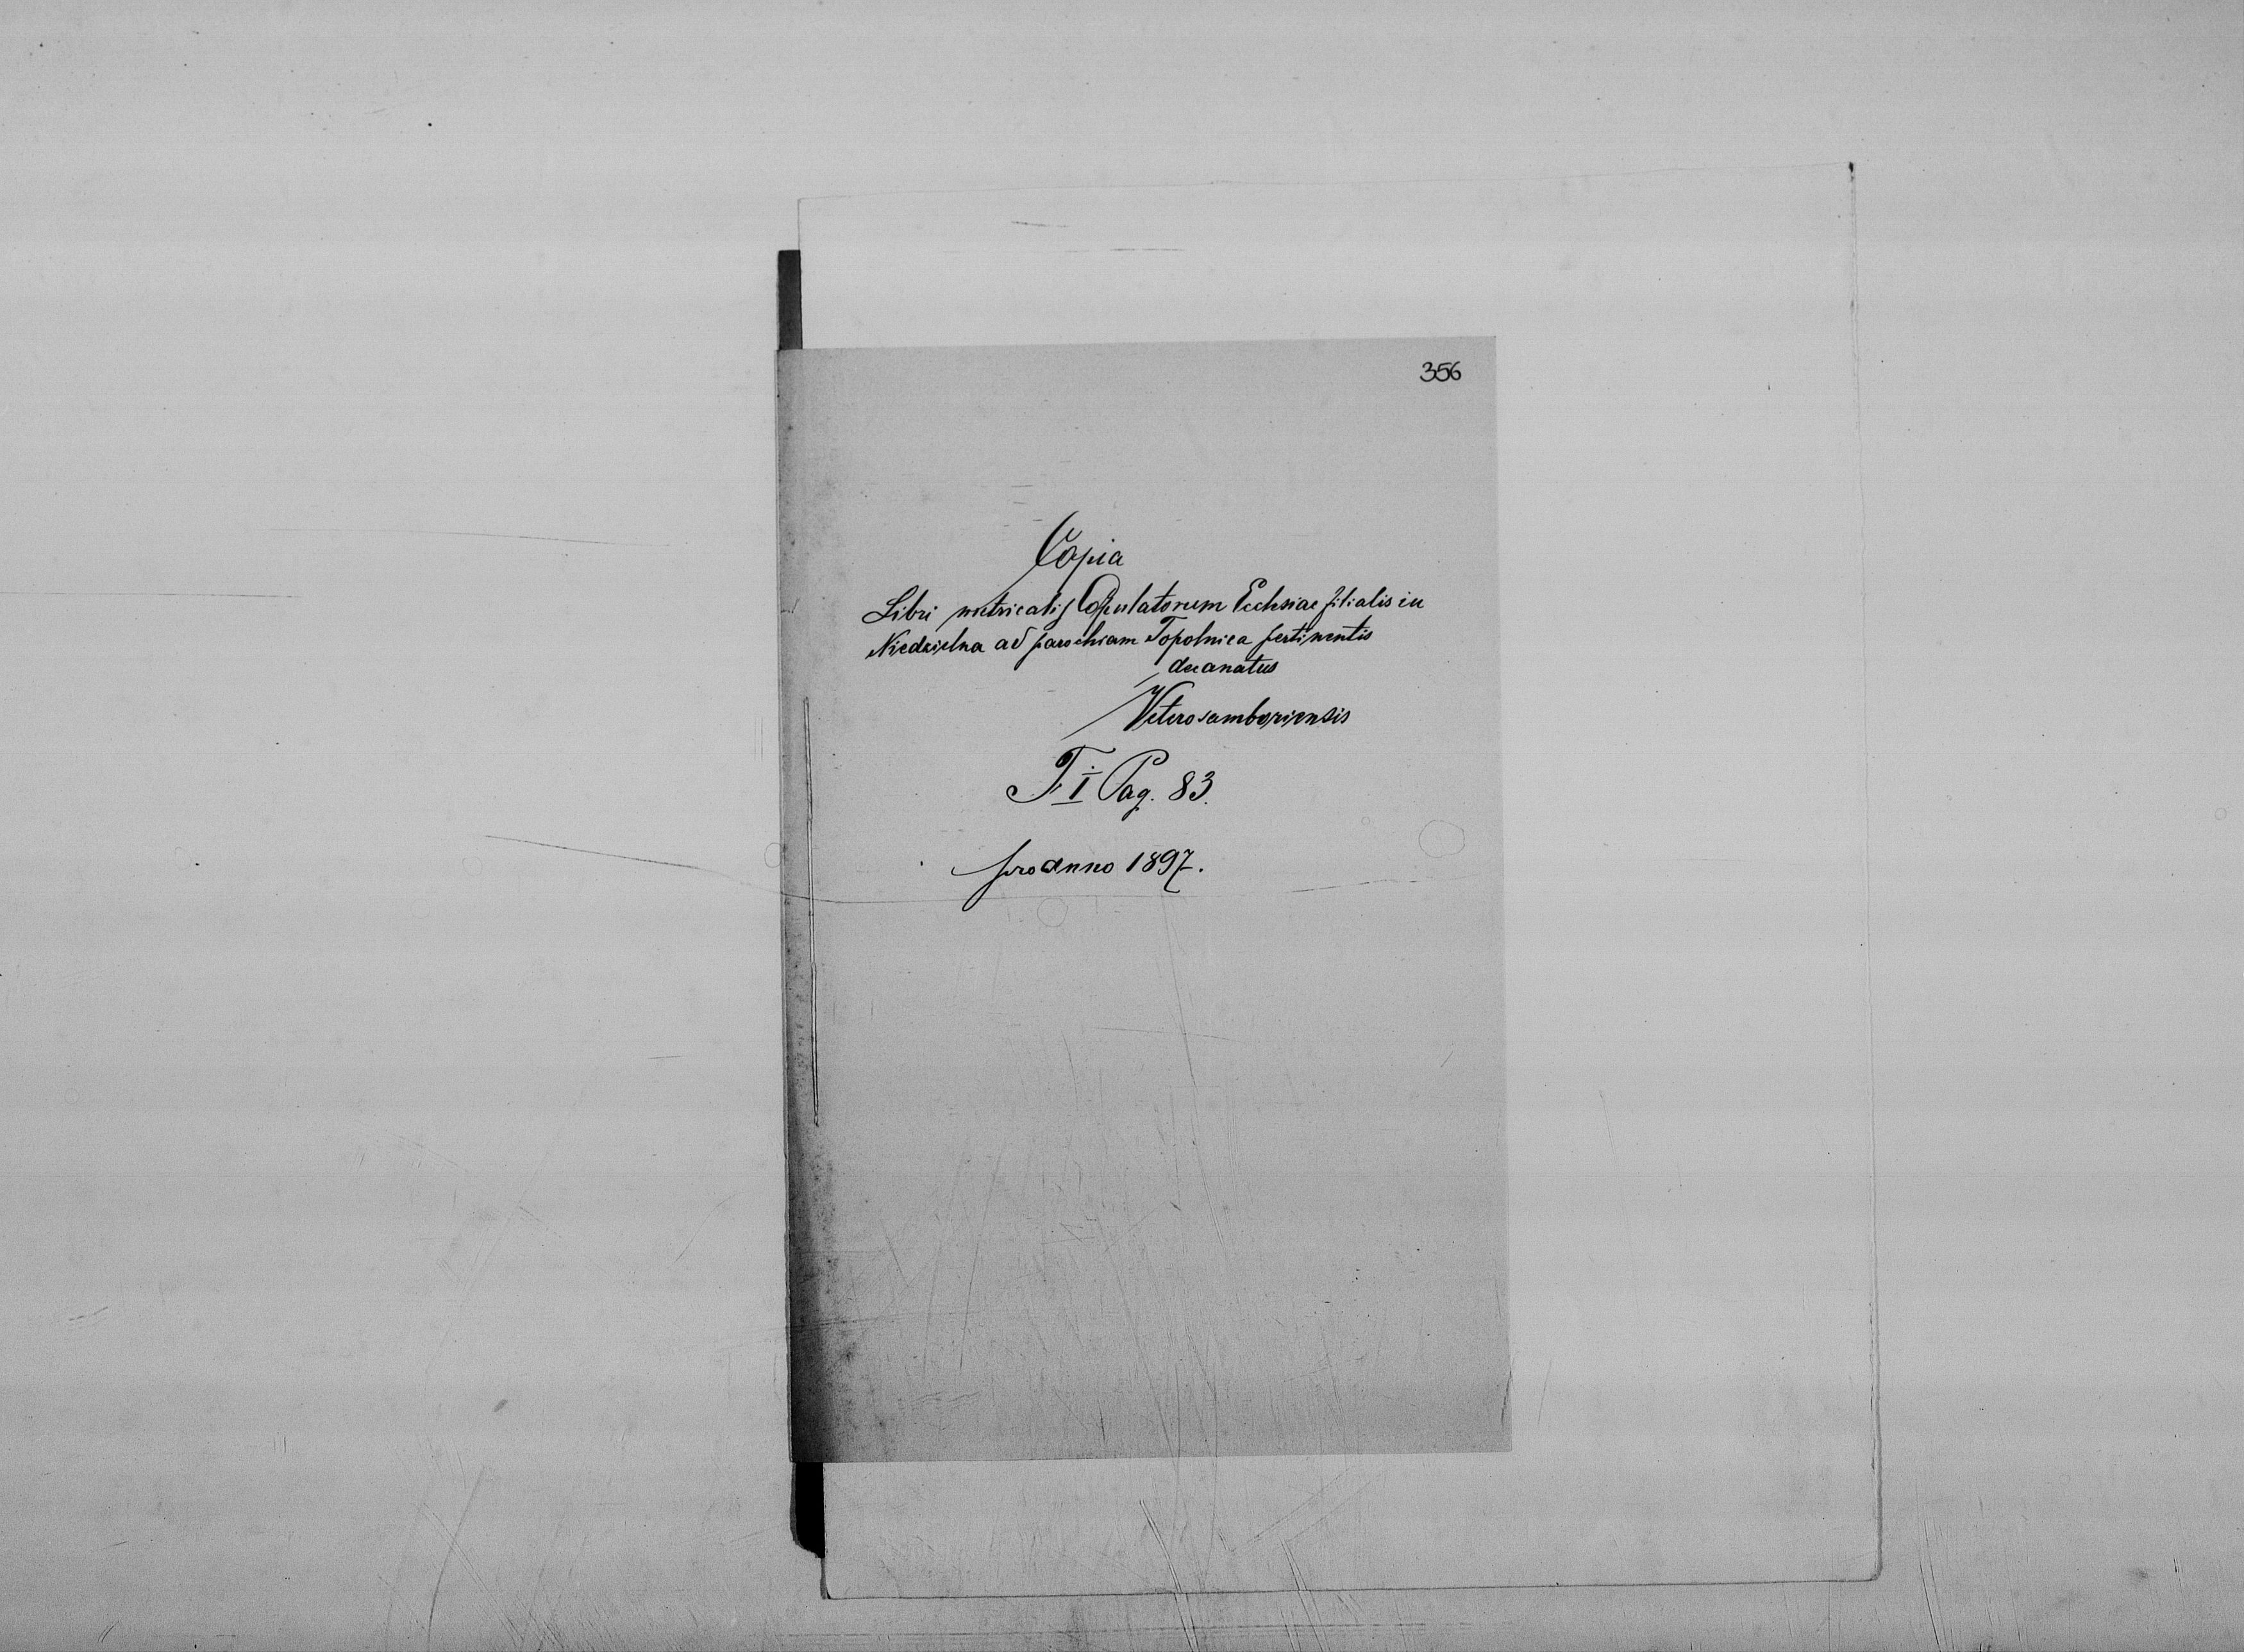 356
Copia
Libri metricalis Copulatorum Ecclesiae filialis in
Niedzielna ad parochiam Topolnica pertinentis
decanatus
Veterosamboriensis
T. I Pag. 83.
pro anno 1897.